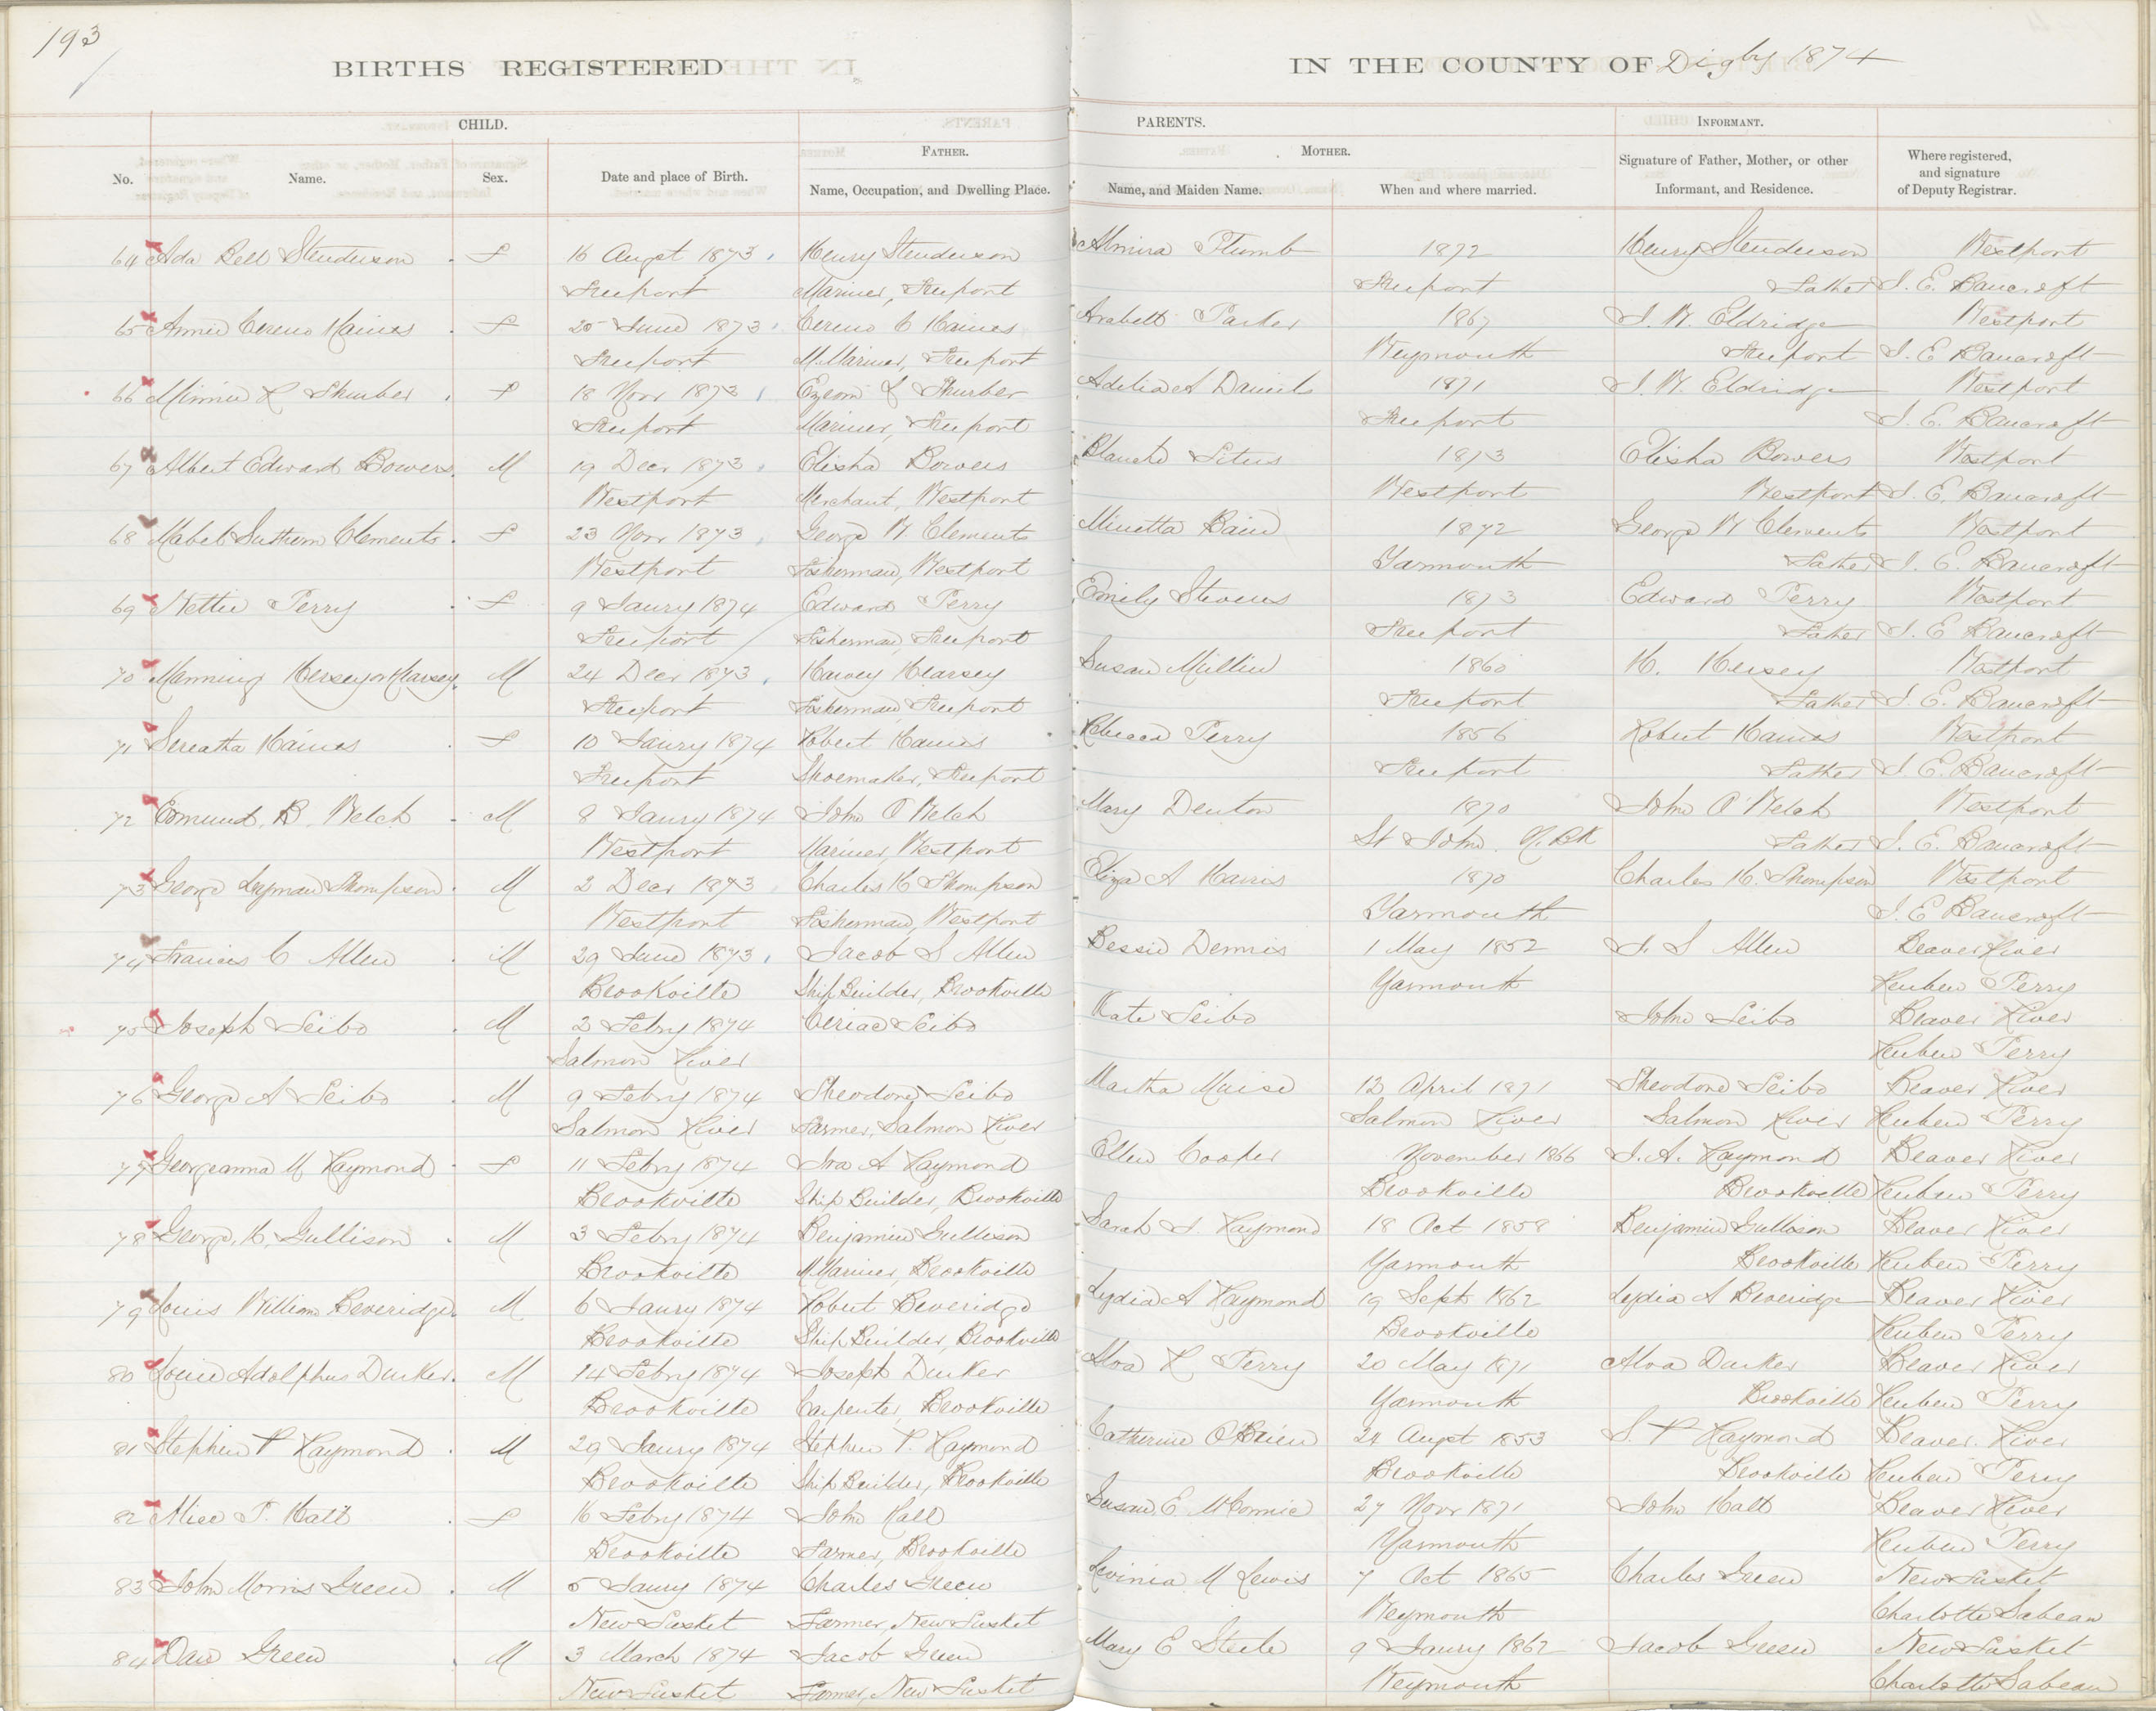 193
BIRTHS REGISTERED
IN THE COUNTY OF Digby 1874
CHILD.
PARENTS.
INFORMANT.
FATHER.
MOTHER.
No.
Name.
Sex.
Date and place of Birth.
Name, Occupation, and Dwelling Place.
Name, and Maiden Name.
When and where married.
Signature of Father, Mother, or other Informant, and Residence.
Where registered, and signature of Deputy Registrar.
64 Ada Bell Stenderson f 16 Augt 1873 Henry Stenderson Almira Plumb 1872 Henry Stenderson Westport
Freeport Mariner, Freeport Freeport Father J. E. Bancroft
65 Annie Cereno Haines f 25 June 1873 Cereno C Haines Arabell Parker 1867 J. W. Eldridge Westport
Freeport M. Mariner, Freeport Weymouth Freeport J. E. Bancroft
66 Minnie R Thurber f 18 Novr 1873 Ezeom J Thurber Adelia A Daniels 1871 J. W. Eldridge Westport
Freeport Mariner, Freeport Freeport J. E. Bancroft
67 Albert Edward Bowers M 19 Decr 1873 Elisha Bowers Blanche Titus 1873 Elisha Bowers Westport
Westport Merchant, Westport Westport Westport J. E. Bancroft
68 Mabel Suthern Clements f 23 Novr 1873 George W Clements Minetta Bain 1872 George W Clements Westport
Westport Fisherman, Westport Yarmouth Father J. E. Bancroft
69 Nettie Perry f 9 Jaury 1874 Edward Perry Emily Stevens 1873 Edward Perry Westport
Freeport Fisherman, Freeport Freeport Father J. E Bancroft
70 Manning Hersey or Hearsey M 24 Decr 1873 Harvey Hearsey Susan Mullin 1860 H. Hersey Westport
Freeport Fisherman, Freeport Freeport Father J. E. Bancroft
71 Sereatha Haines f 10 Jaury 1874 Robert Haines Rebecca Perry 1856 Robert Haines Westport
Freeport Shoemaker, Freeport Freeport Father J. E. Bancroft
72 Edmund. B. Welch M 8 Jaury 1874 John O Welch Mary Denton 1870 John O Welch Westport
Westport Mariner, Westport St John N. Bk Father J. E. Bancroft
73 George Lyman Thompson M 2 Decr 1873 Charles H Thompson Eliza A Harris 1870 Charles H. Thompson Westport
Westport Fisherman, Westport Yarmouth J. E Bancroft
74 Francis C Allen M 29 June 1873 Jacob S Allen Bessie Dennis 1 May 1852 J. S Allen Beaver River
Brookville Ship Builder, Brookville Yarmouth Reuben Perry
75 Joseph Seibo M 2 Febry 1874 Ceriac Seibo Kate Seibo John Seibo Beaver River
Salmon River Reuben Perry
76 George A Seibo M 9 Febry 1874 Theodore Seibo Martha Muise 12 April 1871 Theodore Seibo Beaver River
Salmon River Farmer, Salmon River Salmon River Salmon River Reuben Perry
77 Georgeanna M Raymond f 11 Febry 1874 Ira A Raymond Ellen Cooper November 1866 I. A. Raymond Beaver River
Brookville Ship Builder, Brookville Brookville Brookville Reuben Perry
78 George. H. Gullison M 3 Febry 1874 Benjamin Gullison Sarah J. Raymond 18 Oct 1858 Benjamin Gullison Beaver River
Brookville M. Mariner, Brookville Yarmouth Brookville Reuben Perry
79 Louis William Beveridge M 6 Jaury 1874 Robert Beveridge Lydia A Raymond 19 Sept 1862 Lydia A Beveridge Beaver River
Brookville Ship Builder, Brookville Brookville Reuben Perry
80 Louie Adolphus Durker M 14 Febry 1874 Joseph Durker Alva R Perry 20 May 1871 Alva Durker Beaver River
Brookville Carpenter, Brookville Yarmouth Brookville Reuben Perry
81 Stephen P Raymond M 29 Jaury 1874 Stephen P. Raymond Catherine O'Brien 24 Augt 1853 S. P Raymond Beaver River
Brookville Ship Builder, Brookville Brookville Brookville Reuben Perry
82 Alice T. Hall f 16 Febry 1874 John Hall Susan. E McConnic 27 Novr 1871 John Hall Beaver River
Brookville Farmer, Brookville Yarmouth Reuben Perry
83 John Morris Green M 5 Jaury 1874 Charles Green Levinia M Lewis 7 Oct 1865 Charles Green New Tusket
New Tusket Farmer, New Tusket Weymouth Charlotte Sabean
84 Dan Green M 3 March 1874 Jacob Green Mary E Steele 9 Jaury 1862 Jacob Green New Tusket
New Tusket Farmer, New Tusket Weymouth Charlotte Sabean